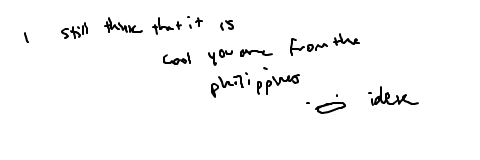 I still think that it is
cool you are from the
philippines
idek